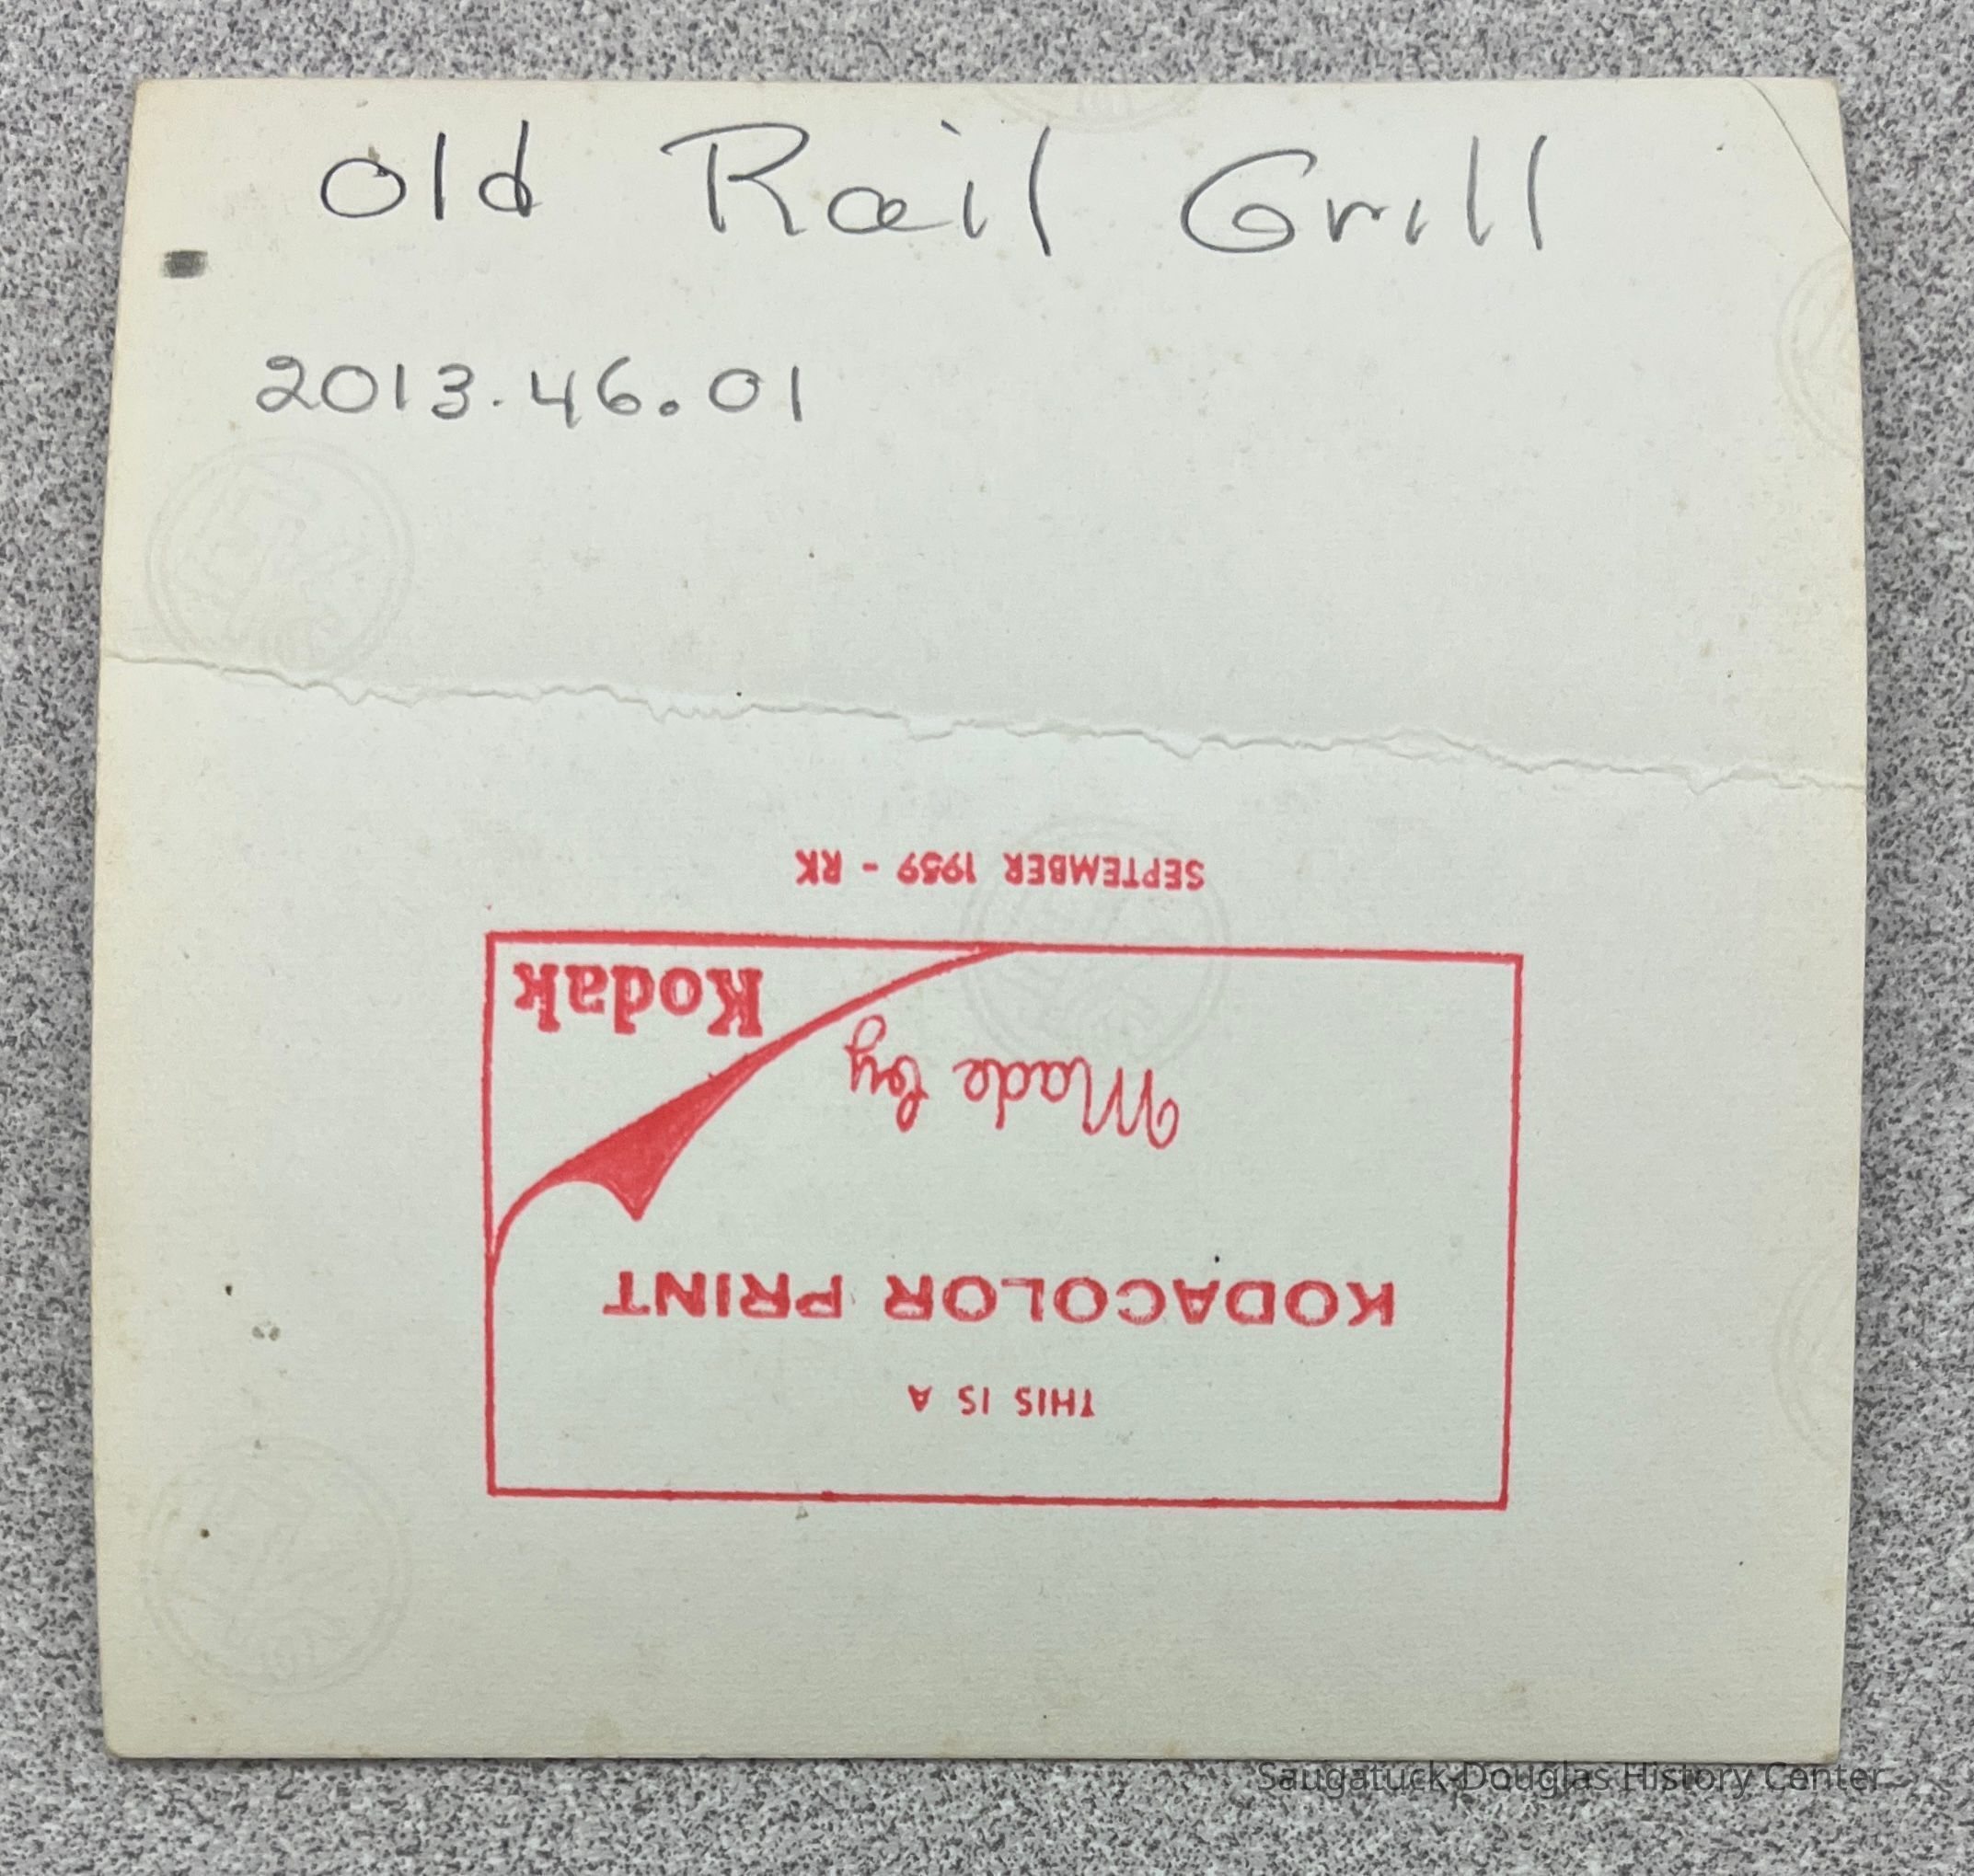 Old Rail Grill
2013.46.01
SEPTEMBER 1959 - RK
THIS IS A
KODACOLOR PRINT
Made by
Kodak
Saugatuck-Douglas History Center